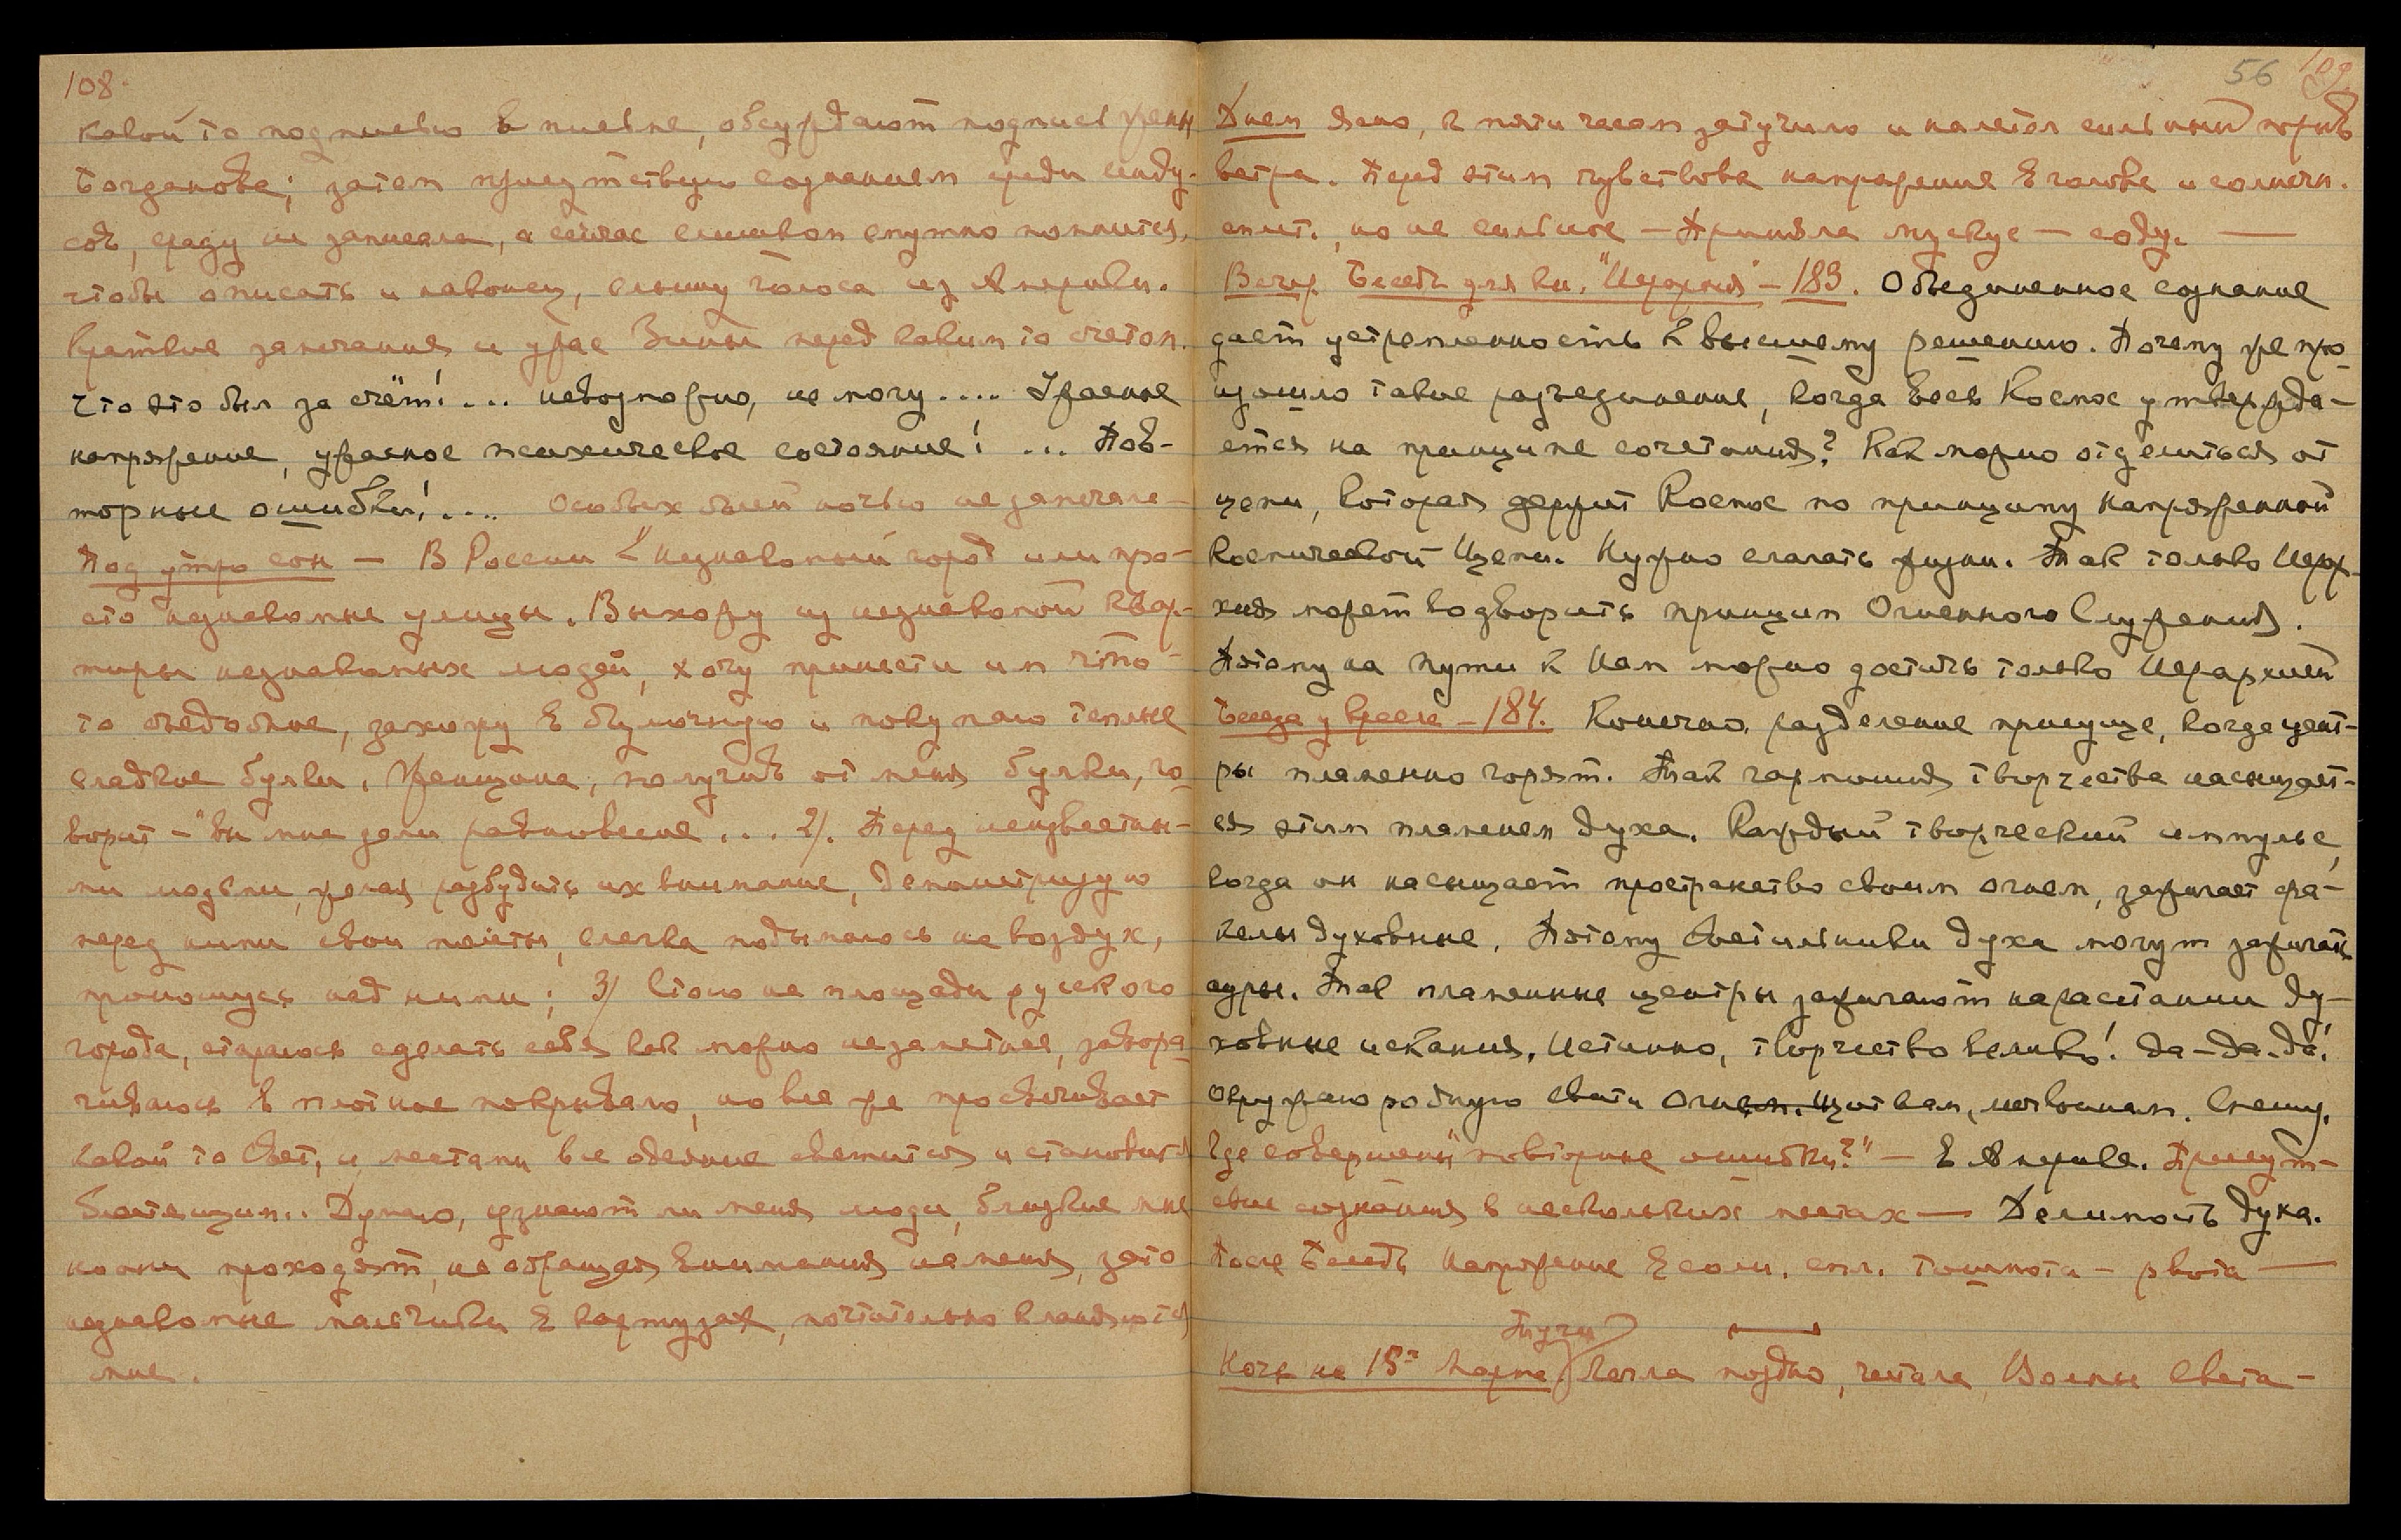 108.
какой то подписью в письме, обсуждают подпись жены
Богданова; затем присутствую сознанием среди инду-
сов, сразу не записала, а сейчас слишком смутно помнится,
чтобы описать и наконец, слышу голоса из Америки.
Краткие замечания и ужас Зины перед каким то счетом.
Что это был за счёт!... невозможно, не могу.... Ужасное
напряжение, ужасное психическое состояние! ... Пов-
торные ошибки!.... Особых болей ночью не замечала —
Под утро сон — В России незнакомый город или про-
сто незнакомые улицы. Выхожу из незнакомой квар-
тиры незнакомых людей, хочу принести им что-
то съедобное, захожу в булочную и покупаю теплые
сладкие булки. Женщина, получив от меня булки, го-
ворит — "вы мне дали равновесие ... 2/. Перед неизвестны-
ми людьми, желая разбудить их внимание, демонстрирую
перед ними свои полёты, слегка подымаюсь на воздух,
проношусь над ними; 3/ Стою на площади русского
города, стараюсь сделать себя как можно незаметнее, завора-
чиваюсь в плотное покрывало, но все же просвечивает
какой то свет, и местами все одеяние светится и становится
блестящим.. Думаю, узнают ли меня люди, близкие мне
но они проходят, не обращая внимания на меня, зато
незнакомые мальчики в картузах, почтительно кланяются
мне.
56 109.
Днем ясно, к пяти часам затучило и налетел сильный порыв
ветра. Перед этим чувствовала напряжение в голове и солнечн.
сплет., но не сильное — Приняла мускус — соду. —
Вечер. Беседа для кн. "Иерархия" — 183. Объединенное сознание
дает устремленность к высшему решению. Почему же про-
изошло такое разъединение, когда весь Космос утвержда-
ется на принципе сочетания? Как можно отделиться от
цепи, которая держит Космос по принципу напряженной
Космической Цепи. Нужно слагать жизни. Так только Иерар-
хия может водворить принцип Огненного Служения.
Потому на пути к Нам можно достичь только Иерархией
Беседа у кресла — 184. Конечно, разделение присуще, когда цент-
ры пламенно горят. Так гармония творчества насыщает-
ся этим пламенем духа. Каждый творческий импульс,
когда он насыщает пространство своим огнем, зажигает фа-
келы духовные. Потому Светильники духа могут зажигать
ауры. Так пламенные центры зажигают нарастании ду-
ховные искания. Истинно, творчество велико! Да-да-да!
Окружаю родную Свати Огнем. Щит вам, моя воинам. Спешу.
Где совершены "повторные ошибки?" — В Америке. Присут-
ствие сознания в нескольких местах — Делимость духа.
После Беседы напряжение в солн. спл. тошнота — рвота —
Тучи
Ночь на 15ое Марта. Легла поздно, читала, Волны Света —